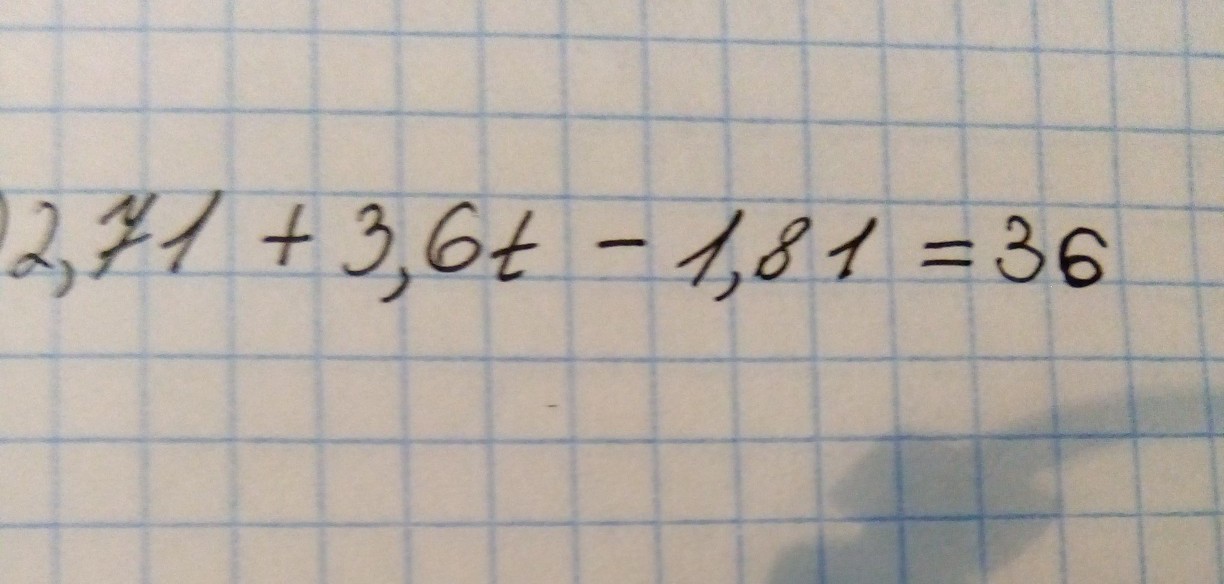 ) 2,71 + 3,6t - 1,81 = 36